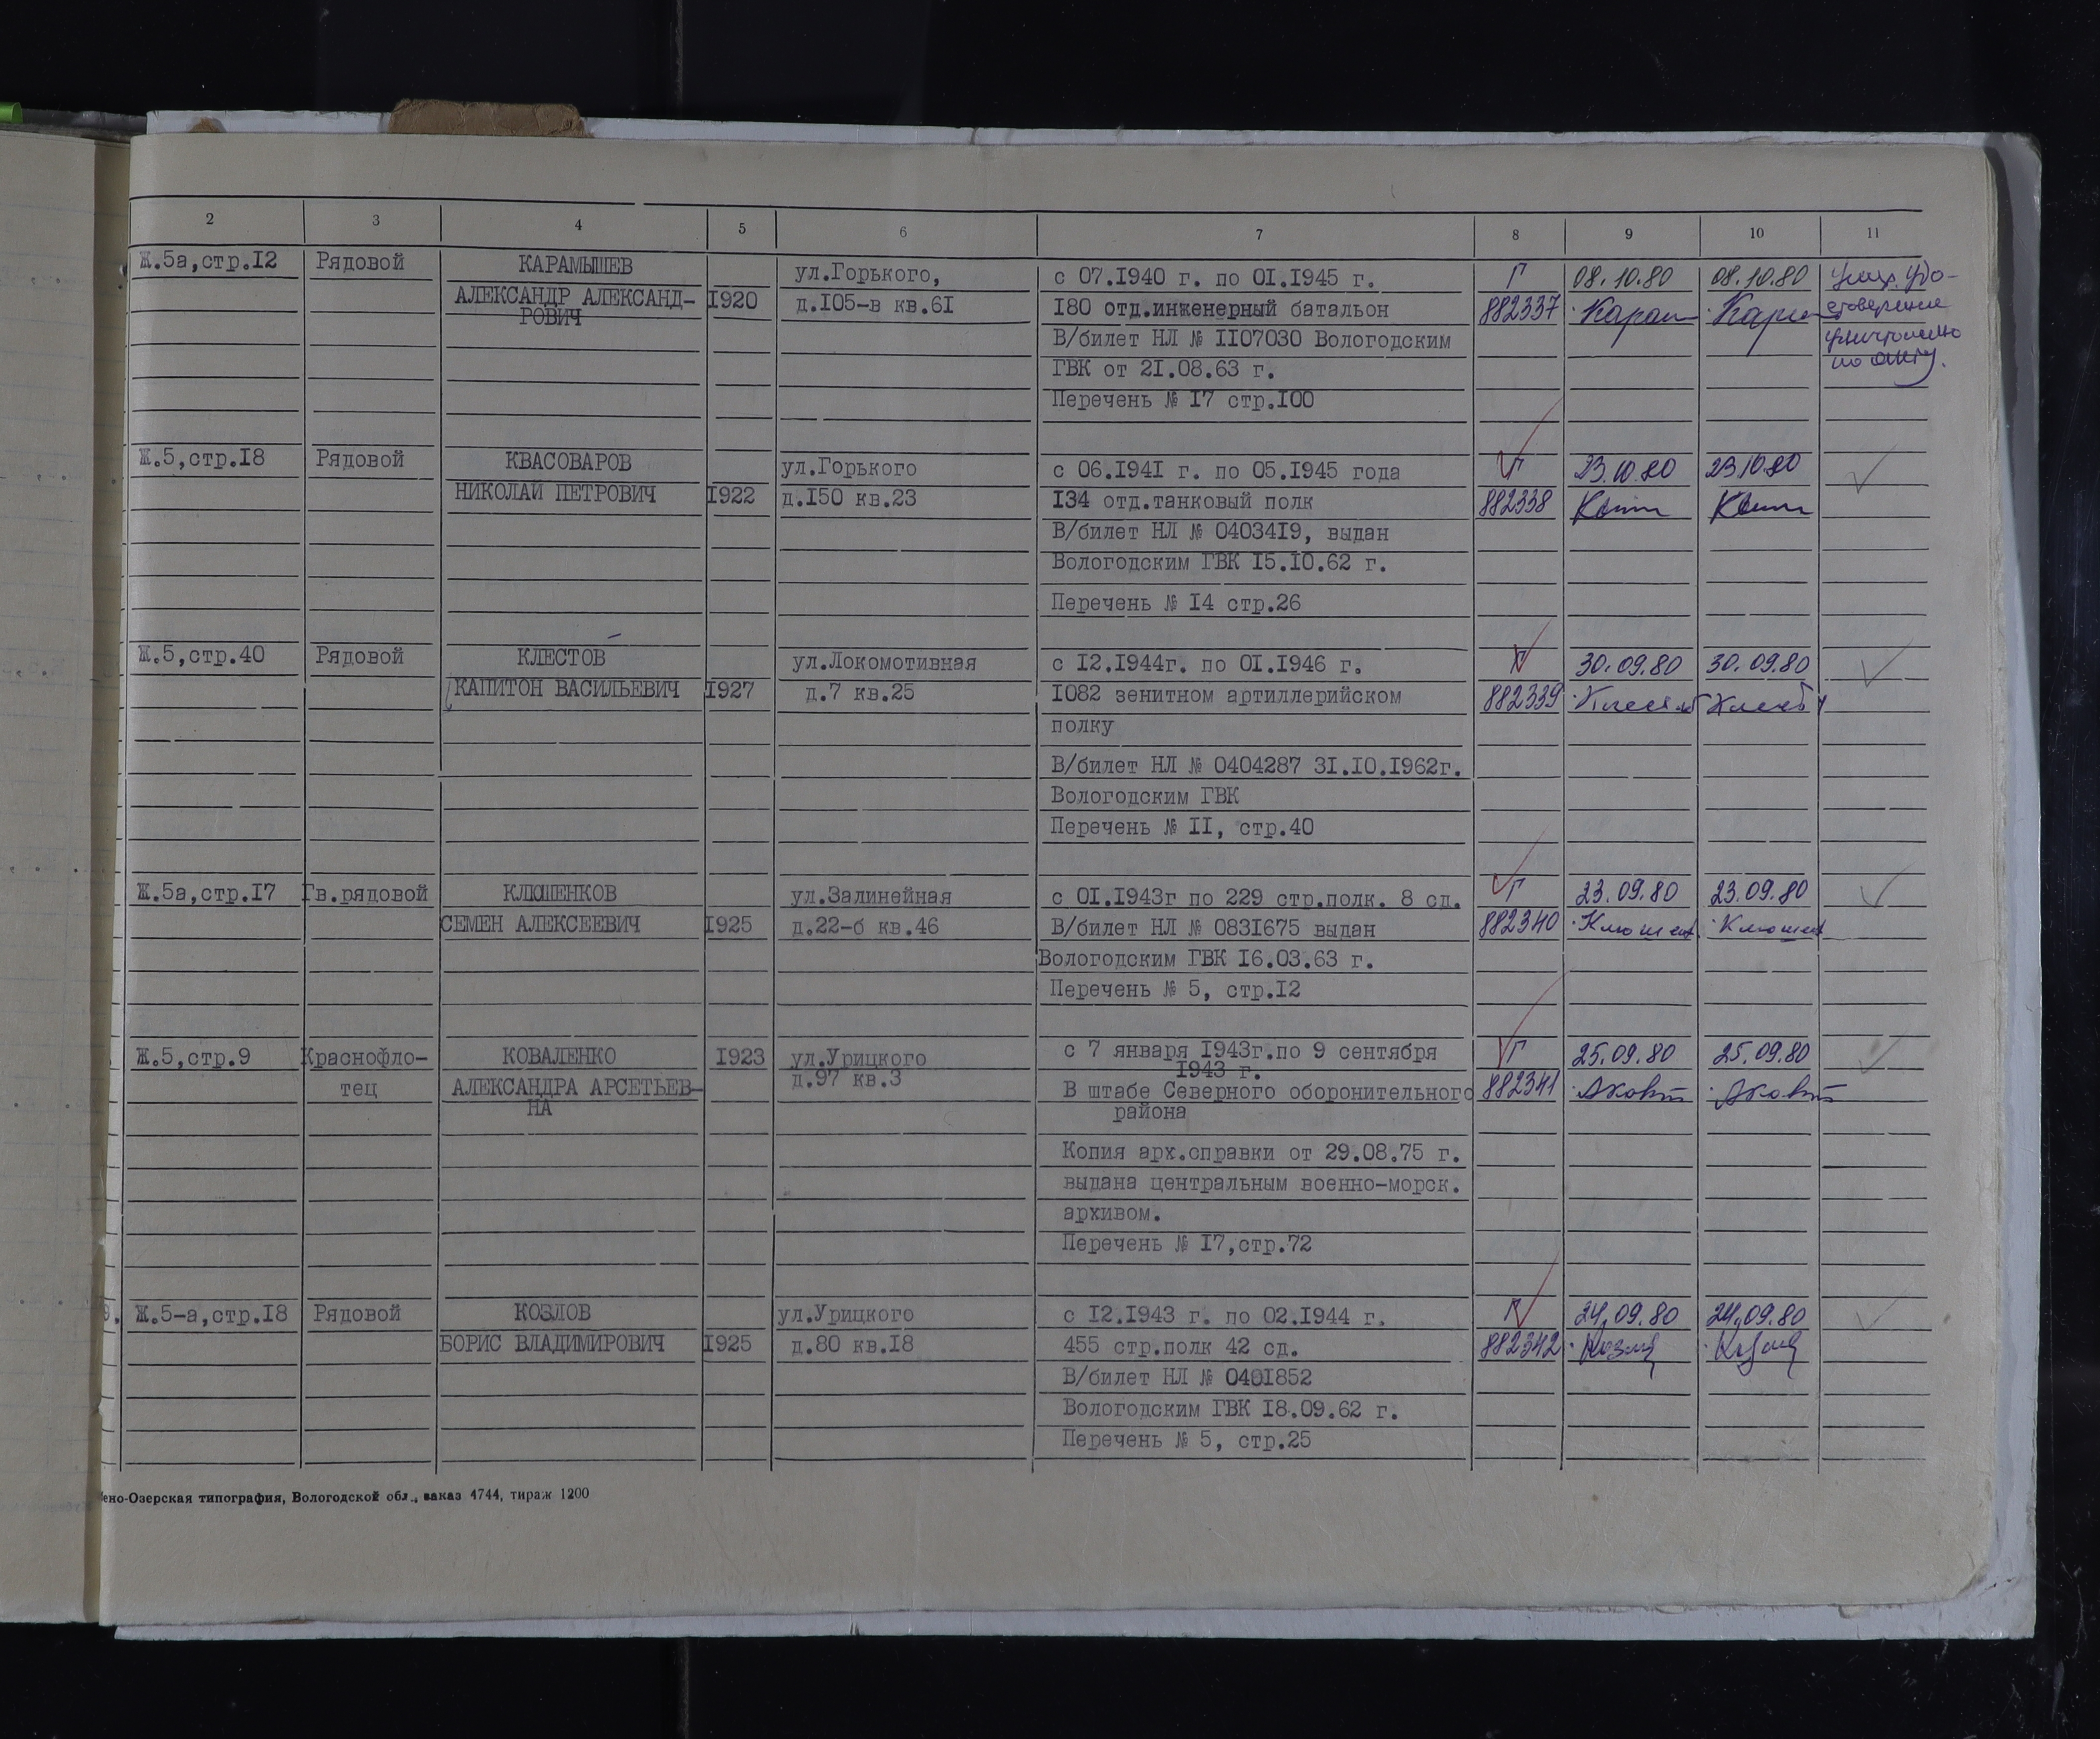 2 3 4 5 6 7 8 9 10 11
Ж.5а,стр.I2 Рядовой КАРАМЫШЕВ ул.Горького, с 07.I940 г. по 0I.I945 г. Г 08.10.80 08.10.80
АЛЕКСАНДР АЛЕКСАНД- I920 д.I05-в кв.6I I80 отд.инженерный батальон 882337
РОВИЧ
В/билет НЛ № II07030 Вологодским
ГВК от 2I.08.63 г.
по акту.
Перечень № I7 стр.I00
Ж.5,стр.I8 Рядовой КВАСОВАРОВ ул.Горького с 06.I94I г. по 05.I945 года Г 23.10.80 23.10.80
НИКОЛАЙ ПЕТРОВИЧ I922 д.I50 кв.23 I34 отд.танковый полк 882338
В/билет НЛ № 04034I9, выдан
Вологодским ГВК I5.I0.62 г.
Перечень № I4 стр.26
Ж.5,стр.40 Рядовой КЛЕСТОВ ул.Локомотивная с I2.I944г. по 0I.I946 г. Г 30.09.80 30.09.80
КАПИТОН ВАСИЛЬЕВИЧ I927 д.7 кв.25 I082 зенитном артиллерийском 882339
полку
В/билет НЛ № 0404287 3I.I0.I962г.
Вологодским ГВК
Перечень № II, стр.40
Ж.5а,стр.I7 Гв.рядовой КЛЮШЕНКОВ ул.Залинейная с 0I.I943г по 229 стр.полк. 8 сд. Г 23.09.80 23.09.80
СЕМЕН АЛЕКСЕЕВИЧ I925 д.22-б кв.46 В/билет НЛ № 083I675 выдан 882340
Вологодским ГВК I6.03.63 г.
Перечень № 5, стр.I2
Ж.5,стр.9 Краснофло- КОВАЛЕНКО I923 ул.Урицкого с 7 января I943г.по 9 сентября Г 25.09.80 25.09.80
I943 г.
тец АЛЕКСАНДРА АРСЕТЬЕВ- д.97 кв.3 В штабе Северного оборонительного 882341
НА района
Копия арх.справки от 29.08.75 г.
выдана центральным военно-морск.
архивом.
Перечень № I7,стр.72
Ж.5-а,стр.I8 Рядовой КОЗЛОВ ул.Урицкого с I2.I943 г. по 02.I944 г. Г 24.09.80 24.09.80
БОРИС ВЛАДИМИРОВИЧ I925 д.80 кв.I8 455 стр.полк 42 сд. 882342
В/билет НЛ № 040I852
Вологодским ГВК I8.09.62 г.
Перечень № 5, стр.25
ено-Озерская типография, Вологодской обл., заказ 4744, тираж 1200